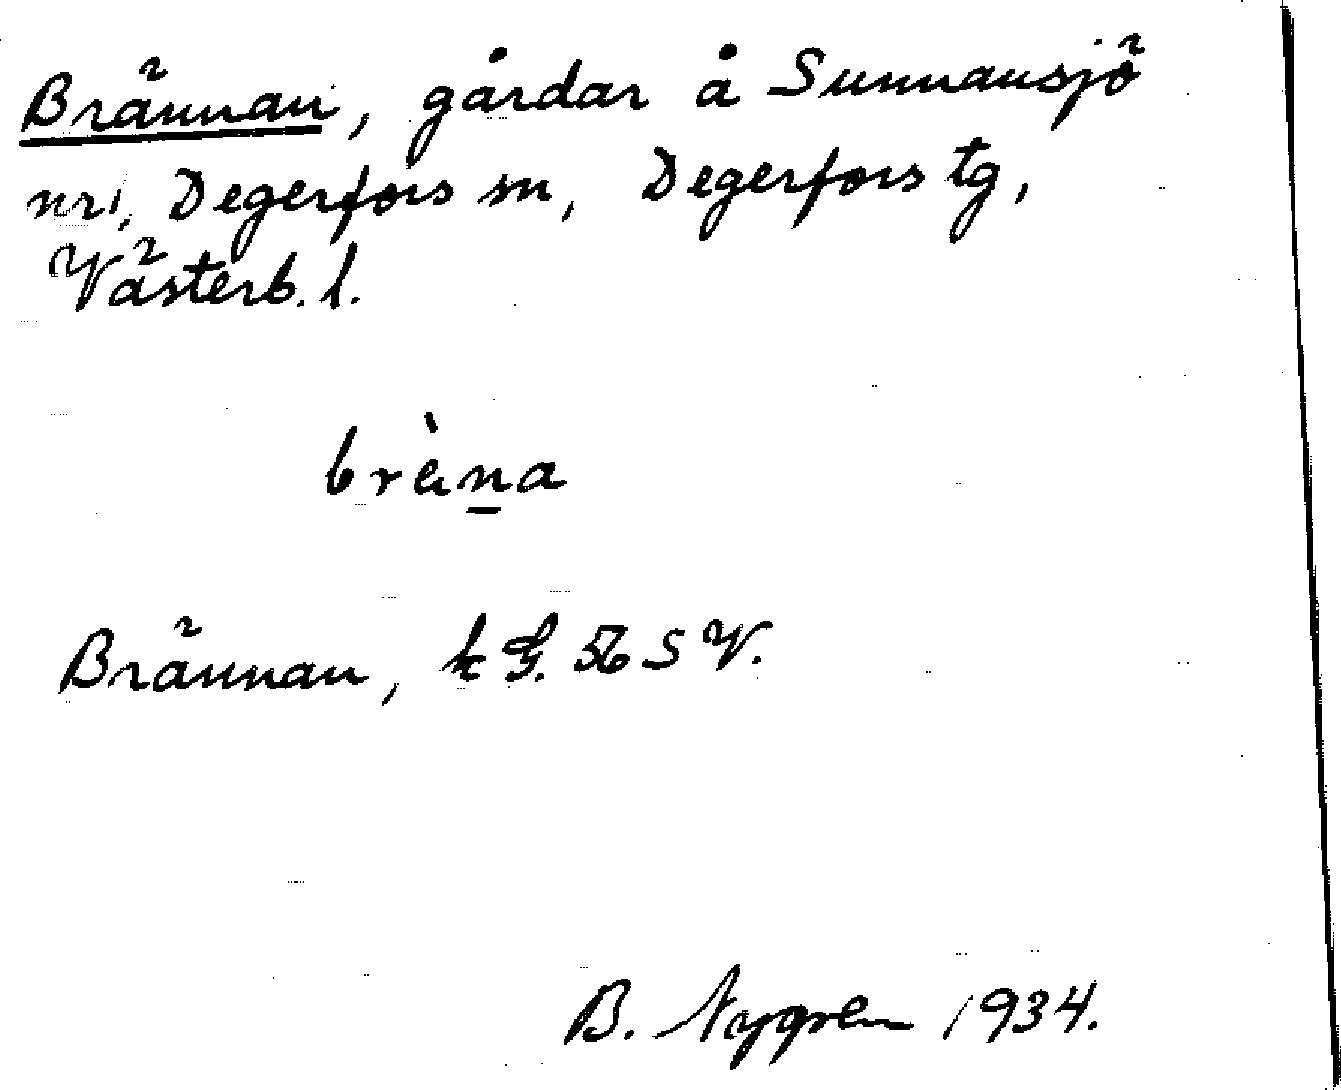 Brännan, gårdar å Sunnansjö
nr 1, Degerfors sn, Degerfors tg,
Västerb. l.
brèn̲a
Brännan, k G. 56 S V.
B. Nygren 1934.